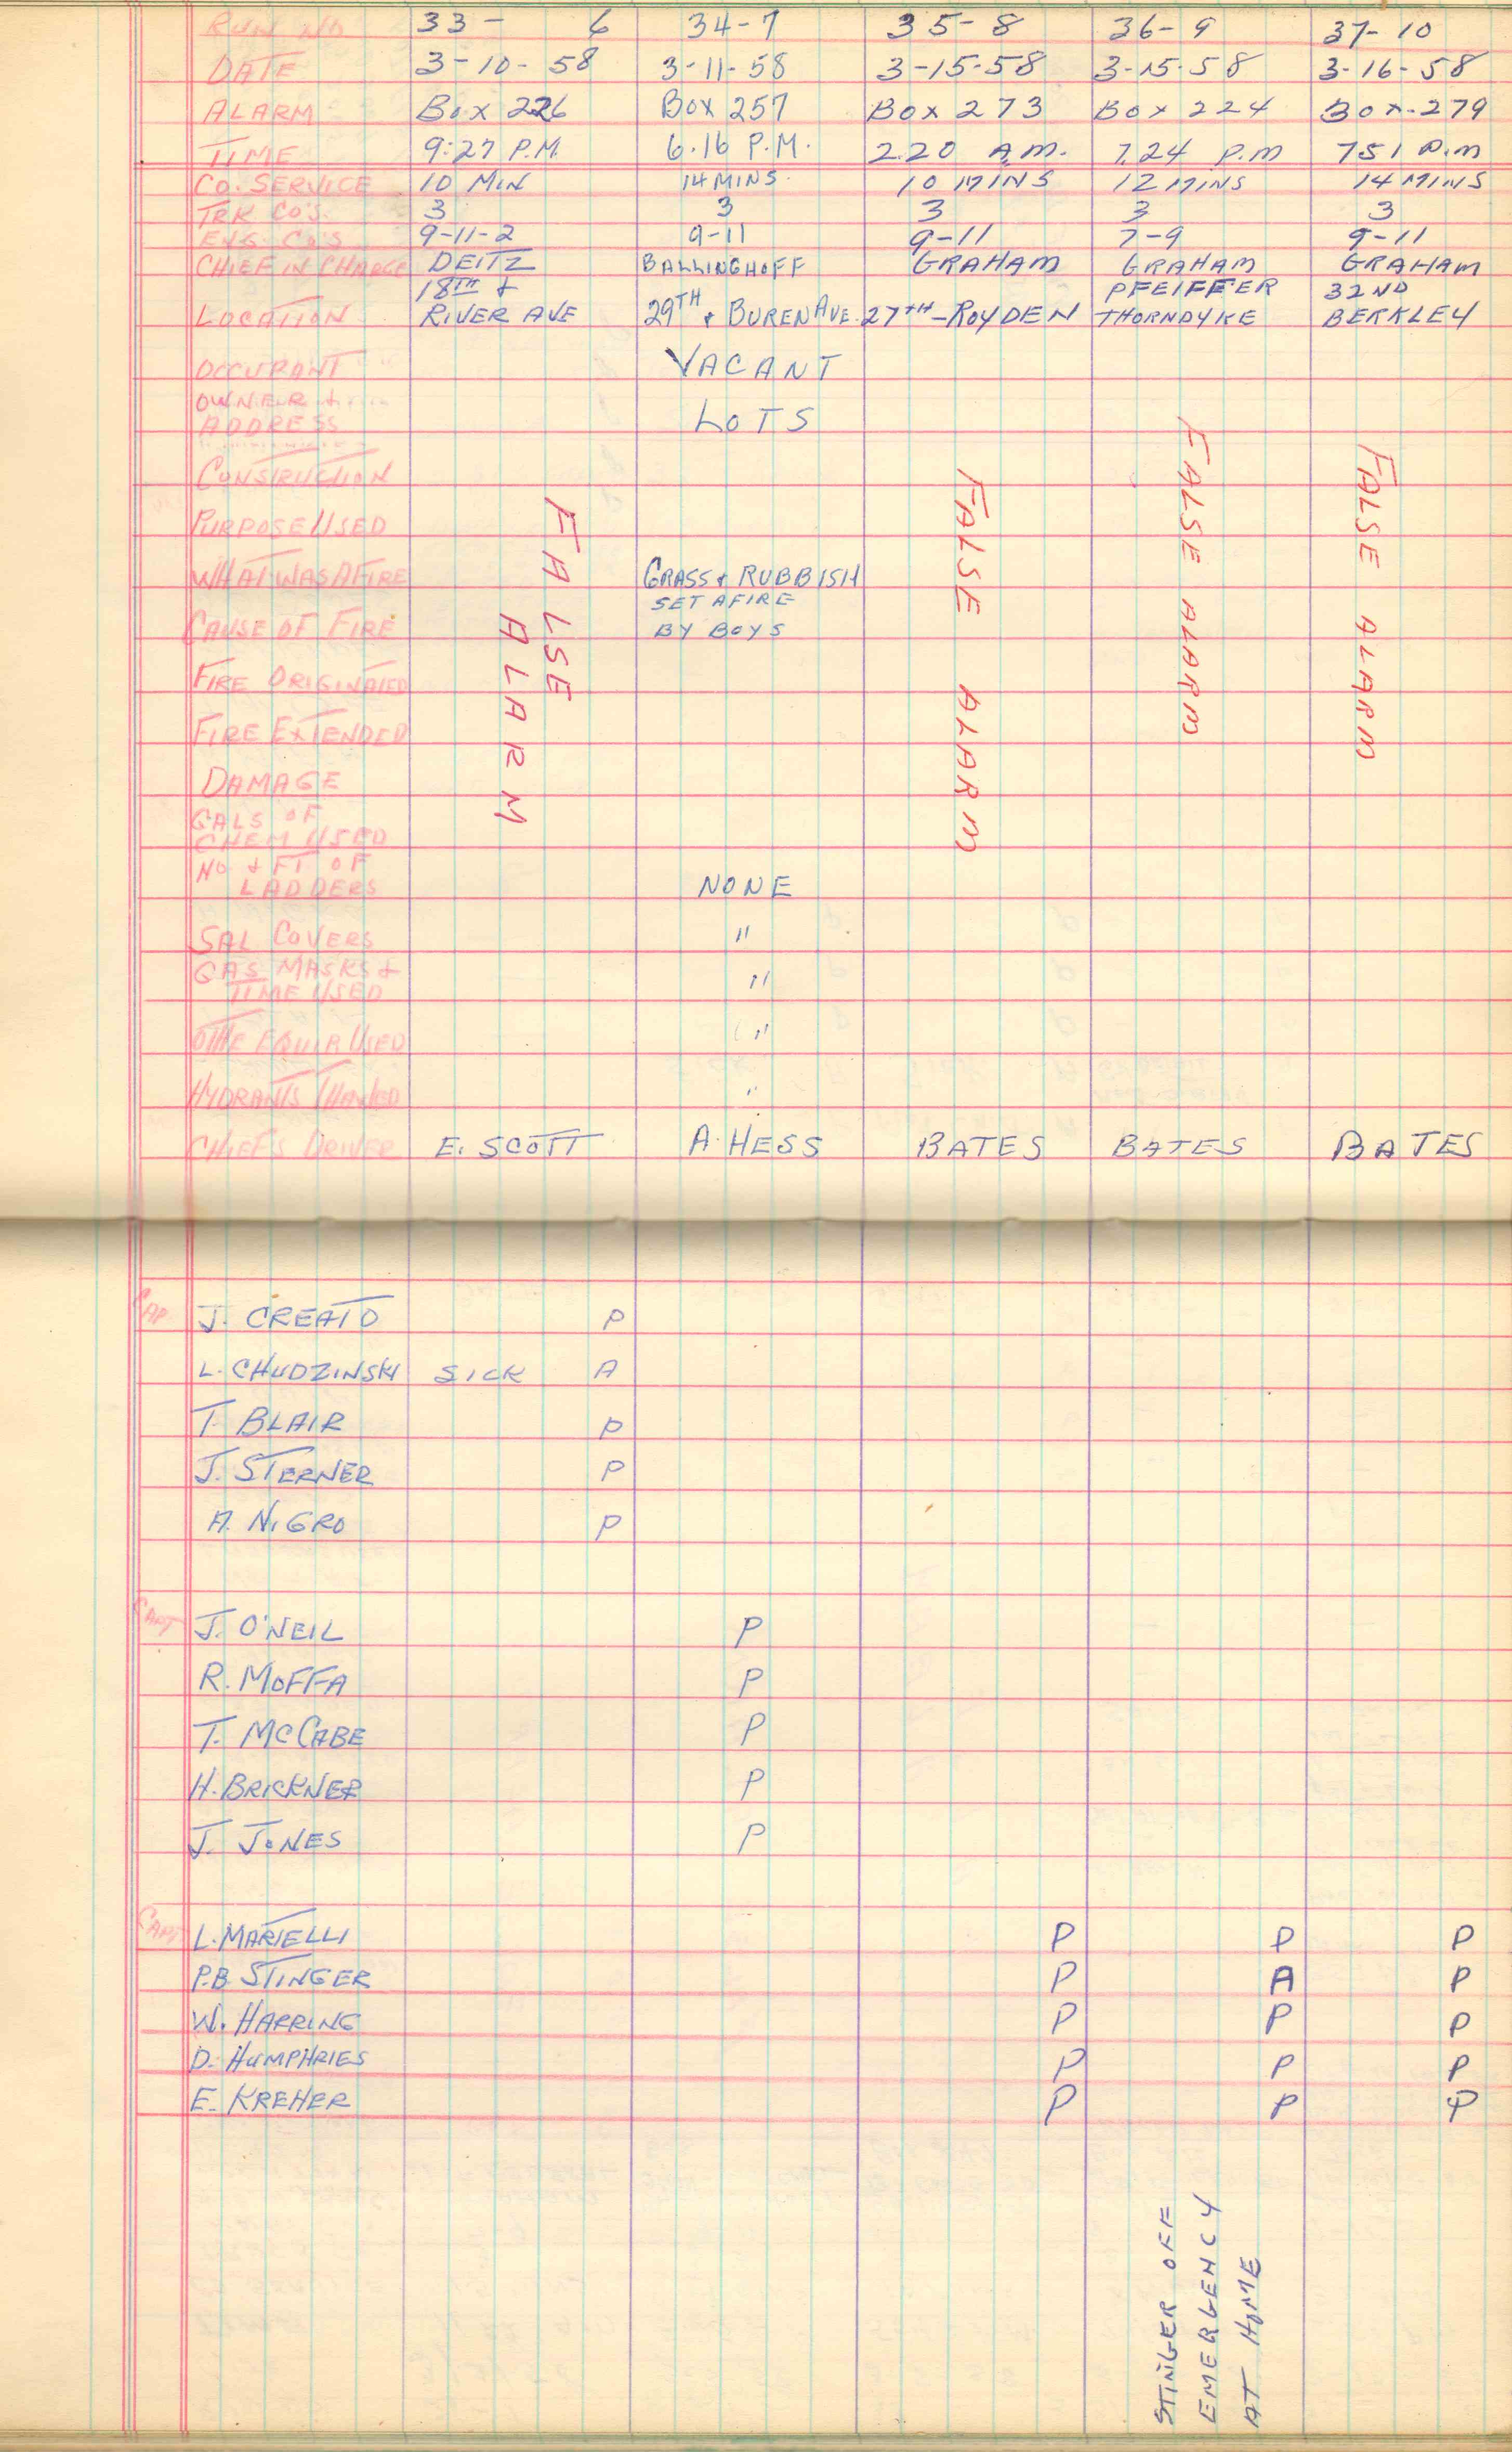 RUN NO 33- 6 34-7 35-8 36-9 37-10
DATE 3-10-58 3-11-58 3-15-58 3-15-58 3-16-58
ALARM BOX 226 BOX 257 BOX 273 BOX 224 BOX-279
TIME 9:27 P.M. 6.16 P.M. 2.20 A.M. 7.24 P.M 751 P.M
CO. SERVICE 10 MIN 14 MINS. 10 MINS 12 MINS 14 MINS
TRK CO'S. 3 3 3 3 3
ENG. CO'S 9-11-2 9-11 9-11 7-9 9-11
CHIEF IN CHARGE DEITZ BALLINGHOFF GRAHAM GRAHAM GRAHAM
18TH & PFEIFFER 32ND
LOCATION RIVER AVE 29TH & BUREN AVE. 27TH-ROYDEN THORNDYKE BERKLEY
OCCUPANT VACANT
OWNER &
ADDRESS LOTS
CONSTRUCTION
PURPOSE USED
WHAT WAS AFIRE GRASS & RUBBISH
SET AFIRE
CAUSE OF FIRE BY BOYS
FALSE
ALARM
FALSE ALARM
FALSE ALARM
FALSE ALARM
FIRE ORIGINATED
FIRE EXTENDED
DAMAGE
GALS OF
CHEM USED
NO & FT OF
LADDERS NONE
SAL. COVERS "
GAS MASKS & 
TIME USED "
OTHE EQUIP. USED "
HYDRANTS THAWED "
CHIEF'S DRIVER E. SCOTT A. HESS BATES BATES BATES
CAP J. CREATO P
L. CHUDZINSKI SICK A
T. BLAIR P
J. STERNER P
A. NIGRO P
CAPT J. O'NEIL P
R. MOFFA P
T. MCCABE P
H. BRICKNER P
J. JONES P
CAPT L. MARTELLI P P P
P.B. STINGER P A P
W. HARRING P P P
D. HUMPHRIES P P P
E. KREHER P P P
STINGER OFF
EMERGENCY
AT HOME